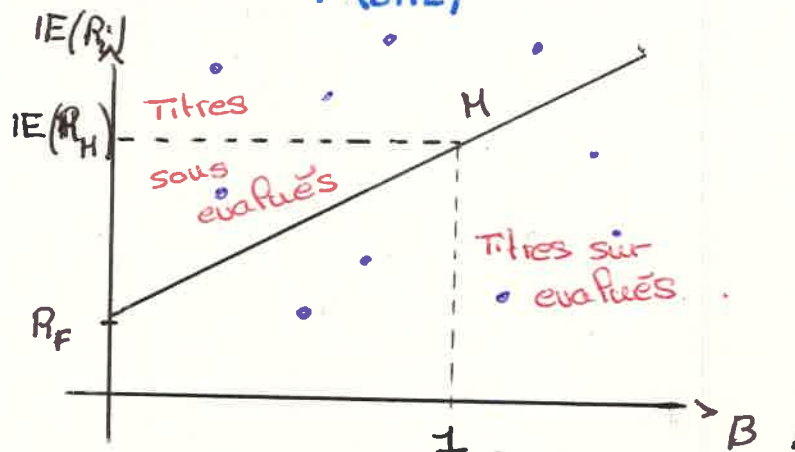 IE(Ri)
Titres
M
IE(RM)
sous
evalués
Titres sur
evalués.
RF
1
β